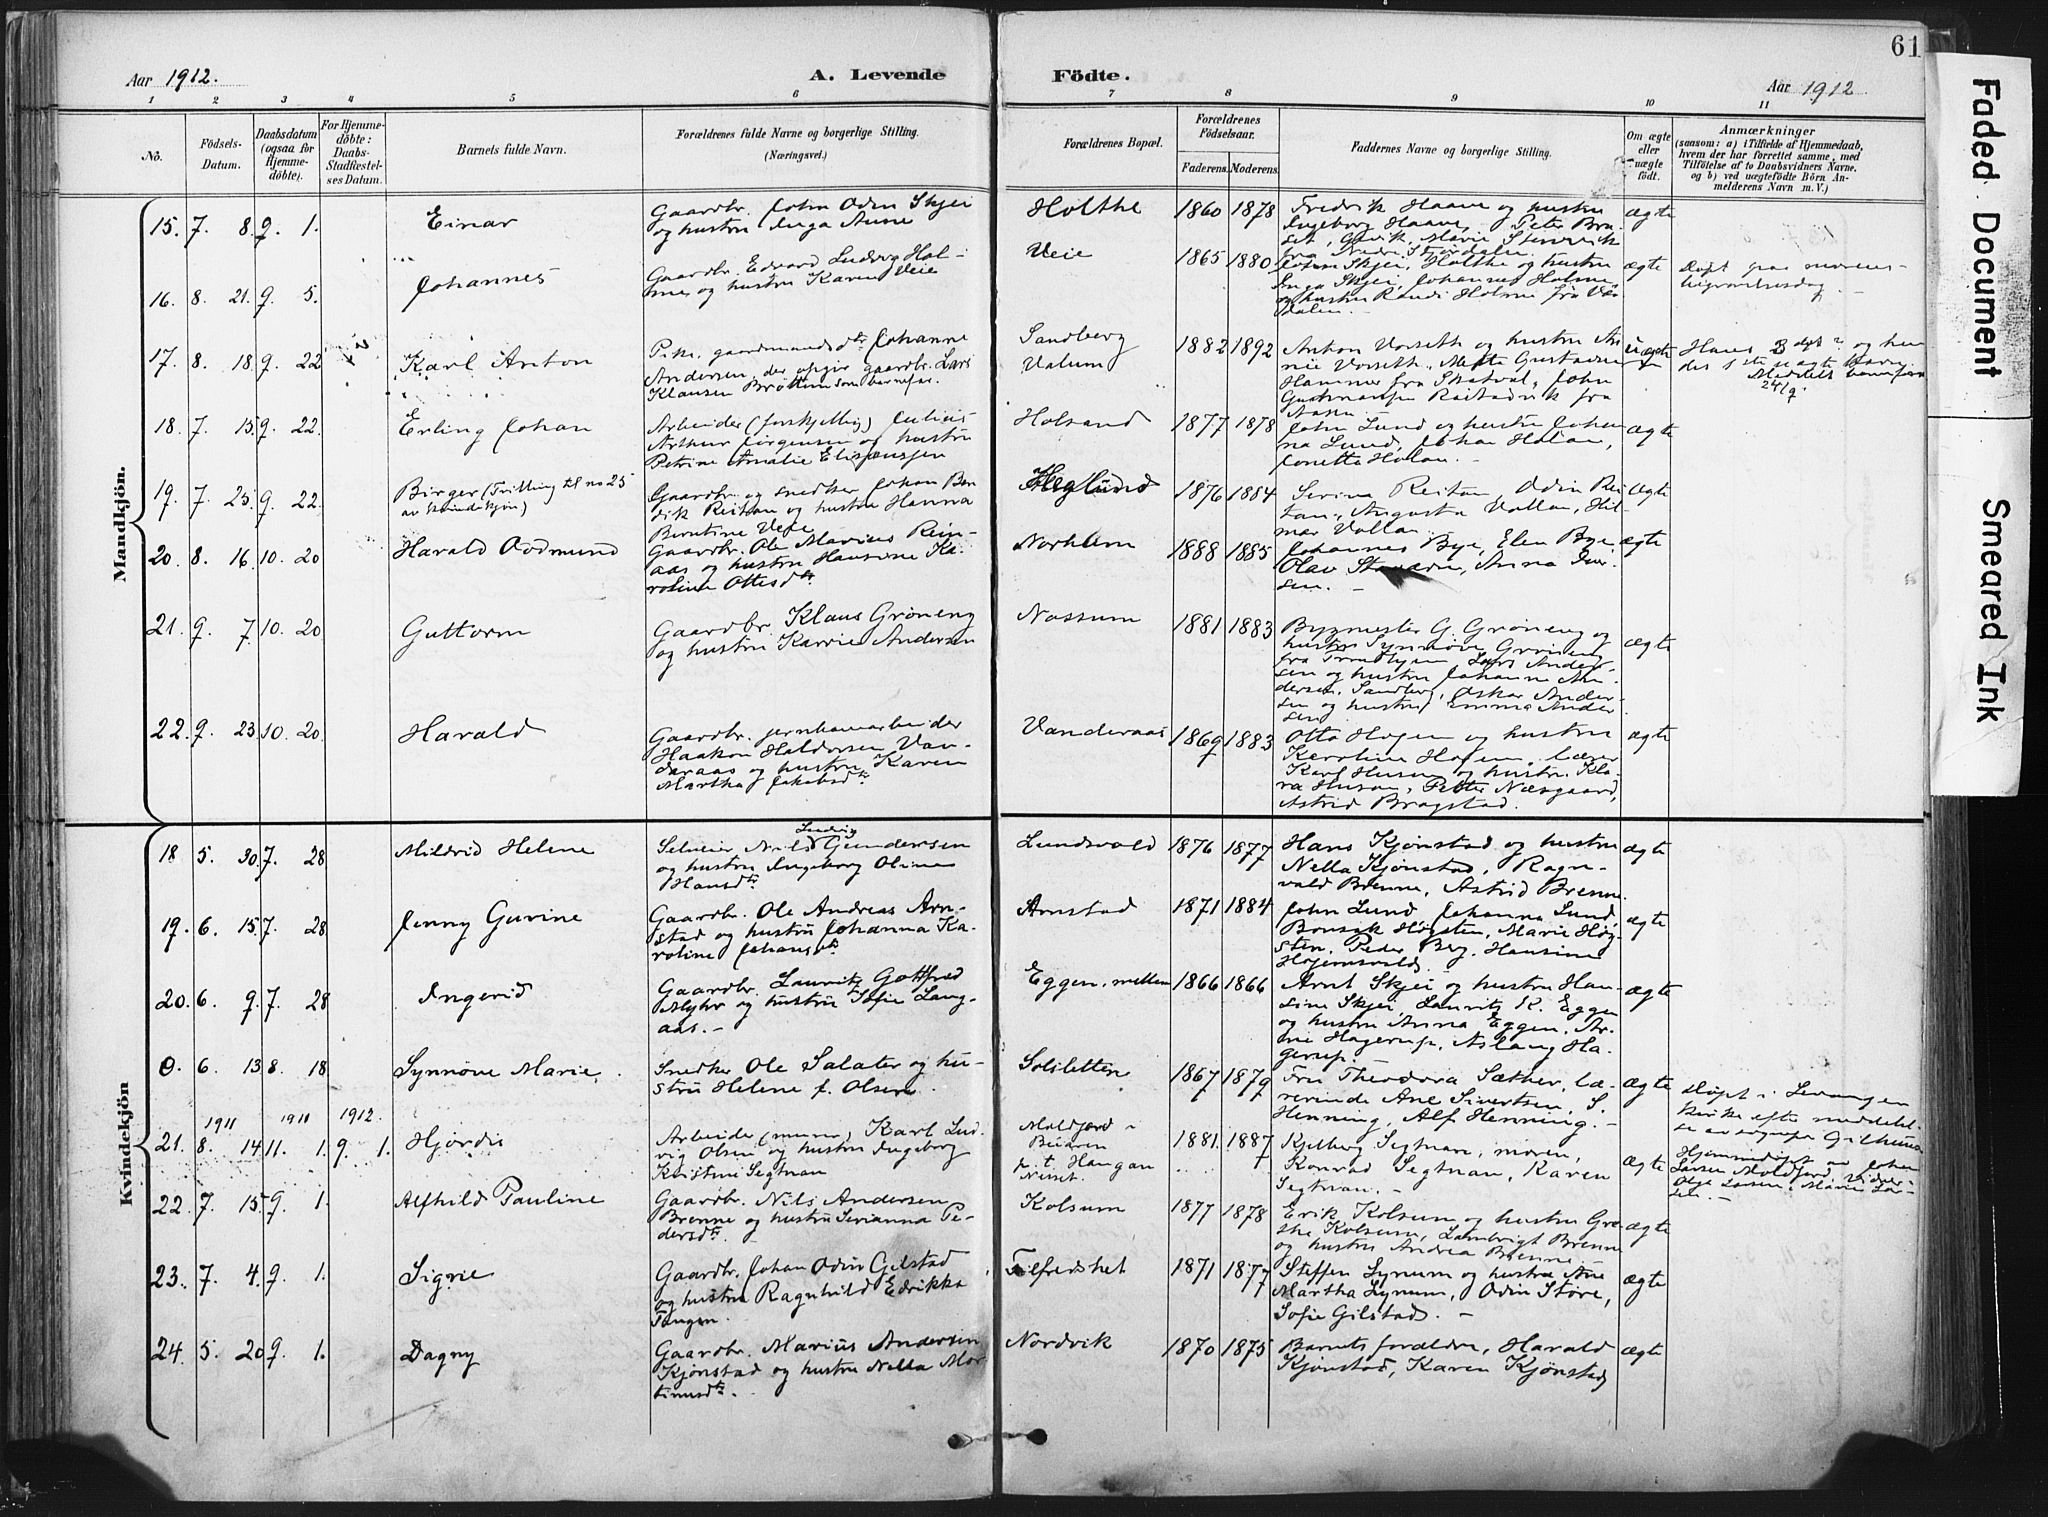 61
Aar 1912.
A. Levende
Födte.
Aar 1912
1 2 3 4 5 6 7 8 9 10 11
No.
Födsels-
Datum.
Daabsdatum
(ogsaa for
Hjemme-
döbte).
For Hjemme-
döbte:
Daabs-
Stadfæstel-
ses Datum.
Barnets fulde Navn.
Forældrenes fulde Navne og borgerlige Stilling.
(Næringsvei.)
Forældrenes Bopæl.
Forældrenes
Födselsaar.
Faderens. Moderens.
Faddernes Navne og borgerlige Stilling.
Om ægte
eller
uægte
födt.
Anmærkninger
(saasom: a) i Tilfælde af Hjemmedaab,
hvem der har forrettet samme, med
Tilföielse af to Daabsvidners Navne,
og b) ved uægtefödte Börn An-
melderens Navn m. V.)
Mandkjön.
15. 7. 8. 9. 1. Einar
Gaardbr. John Odin Skjei
og hustru Inga Aune
Holthe 1860 1878
Fredrik Haave og hustru
Ingeborg Haave, Peter Bra-
fra Nedre Stjørdalen
ægte
16. 8. 21. 9. 5. Johannes
Gaardbr. Edvard Ludvig Hol-
me, og hustru Karen Veie
Veie 1865 1880
John Skjei, Holthe og hustru
Inga Skjei, Johannes Holme
og hustru Randi Holme fra Vær-
dalen.
ægte
Døpt paa morens
begravelsesdag.
17. 8. 18. 9. 22. Karl Anton
Pike, gaardmandsdtr Johanne
Andersen, der opgir gaardbr. Lars
Klausen Brøttem som barnefar.
Sandberg
Valum
1882 1892
Anton Vorseth og hustru An-
nie Vorseth, Mette Gustavsen
Hammer fra Skatval, John
uægte
18. 7. 15. 9. 22. Erling Johan
Arbeider (forskjellig) Julius
Arthur Jørgensen og hustru
Petrine Amalie
Holsand 1877 1878
John Lund og hustru Johan-
na Lund, Johan Holan,
Jonetta Holan.
ægte
19. 7. 25. 9. 22. Birger (Trilling til no 25
av kvindekjøn)
Gaardbr. og snedker Johan Ben-
dik Reitan og hustru Hanna
Berntine Veie
Heglund 1876 1884
Serina Reitan, Odin Rei-
tan, Augusta Vollan, Hil-
mar Vollan
ægte
20. 8. 16. 10. 20. Harald Oddmund
Gaardbr. Ole Marius Rein-
aas og hustru Hansine Ka-
roline Ottesdtr
Norhlem 1888 1885
Johannes Bye, Elen Bye
Olav, Anna Iver-
sen.
ægte
21. 9. 7. 10. 20 Guttorm
Gaardbr. Klaus Grøneng
og hustru Karrie Andersen
Nossum 1881 1883
Bygmester G. Grøneng og
hustru Synnøve Grøneng
fra Trondhjem, Lars Ander-
sen og hustru Johanne An-
dersen, Sandberg, Oskar Ander-
sen og hustru Emma Ander-
sen
ægte
22. 9. 23. 10. 20. Harald
Gaardbr. jernbanearbeider
Haakon Haldorsen Van-
deraas og hustru Karen
Martha Jakobsdtr
Vanderaas 1869 1883
Otto Hogen og hustru
Karoline Hogen, lærer
Karl Husan og hustru Kla-
ra Husan, Petter Næsgaard,
Astrid Brogstad.
ægte
Kvindekjön
18 5. 30. 7. 28 Mildrid Helene
Selveier Nils Ludvig Gundersen
og hustru Ingeborg Oline
Hansdtr
Lundsvald 1876 1877
Hans Kjønstad og hustru
Nella Kjønstad, Ragn-
vald Brenne, Astrid Brenne
ægte
19. 6. 15. 7. 28 Jenny Guvine
Gaardbr. Ole Andreas Arn-
stad og hustru Johanna Ka-
roline Johansdtr
Arnstad 1871 1884
John Lund, Johanna Lund,
Bonsak Høgsten, Marie Høg-
sten, Peder Berg, Hansine
ægte
20. 6. 9. 7. 28 Ingerid
Gaardbr. Lauritz Gottfred
Myhr og hustru Sofie Lang-
aas.-
Eggen, mellem 1866 1866
Arnt Skjei og hustru Han-
sine Skjei, Lauritz K. Eggen
og hustru Anna Eggen, Ar-
ne Hagerup, Aslaug Ha-
gerup.
ægte
0. 6. 13. 8. 18. Synnøve Marie
Snedker Ole Salater og hu-
stru Helene f. Olsen
Solsletten 1867 1879
Fru Theodora Sæther, læ-
rerinde Ane Sivertsen, S.
Henning, Alf Henning.-
ægte
Døpt i Levanger
kirke efter meddelel-
1911 1911 1912.
21. 8. 14. 11. 1. 9. 1. Hjørdis
Arbeider (murer) Karl Lud-
vig Olsen og hustru Ingeborg
Kristine Segtnan
Moldjord i
Beiaren
1881. 1887
Kjelberg Segtnan, moren,
Konrad Segtnan, Karen
Segtnan.-
ægte
Hjemmedøpt av Johan
Larsen Moldjord. Vidner
22. 7. 15. 9. 1. Alfhild Pauline
Gaardbr. Nils Andersen
Brenne og hustru Serianna Pe-
dersdtr.
Kolsum 1877 1878
Erik Kolsum og hustru Gre-
the Kolsum, Lambrigt Brenne
og hustru Andrea Brenne
ægte
23. 7. 4. 9. 1. Signe
Gaardbr. Johan Odin Gilstad
og hustru Ragnhild Edrikke
Tangen.
Tilfredshet 1871 1877
Steffen Lynum og hustru Ane
Martha Lynum, Odin Støre,
Sofie Gilstad. -
ægte
24. 5. 20. 9. 1. Dagny
Gaardbr. Marius Andersen
Kjønstad og hustru Nella Mor-
timusdtr.-
Nordvik 1870 1875
Barnets forældre, Harald
Kjønstad, Karen Kjønstad
ægte
Faded Document
Smeared Ink